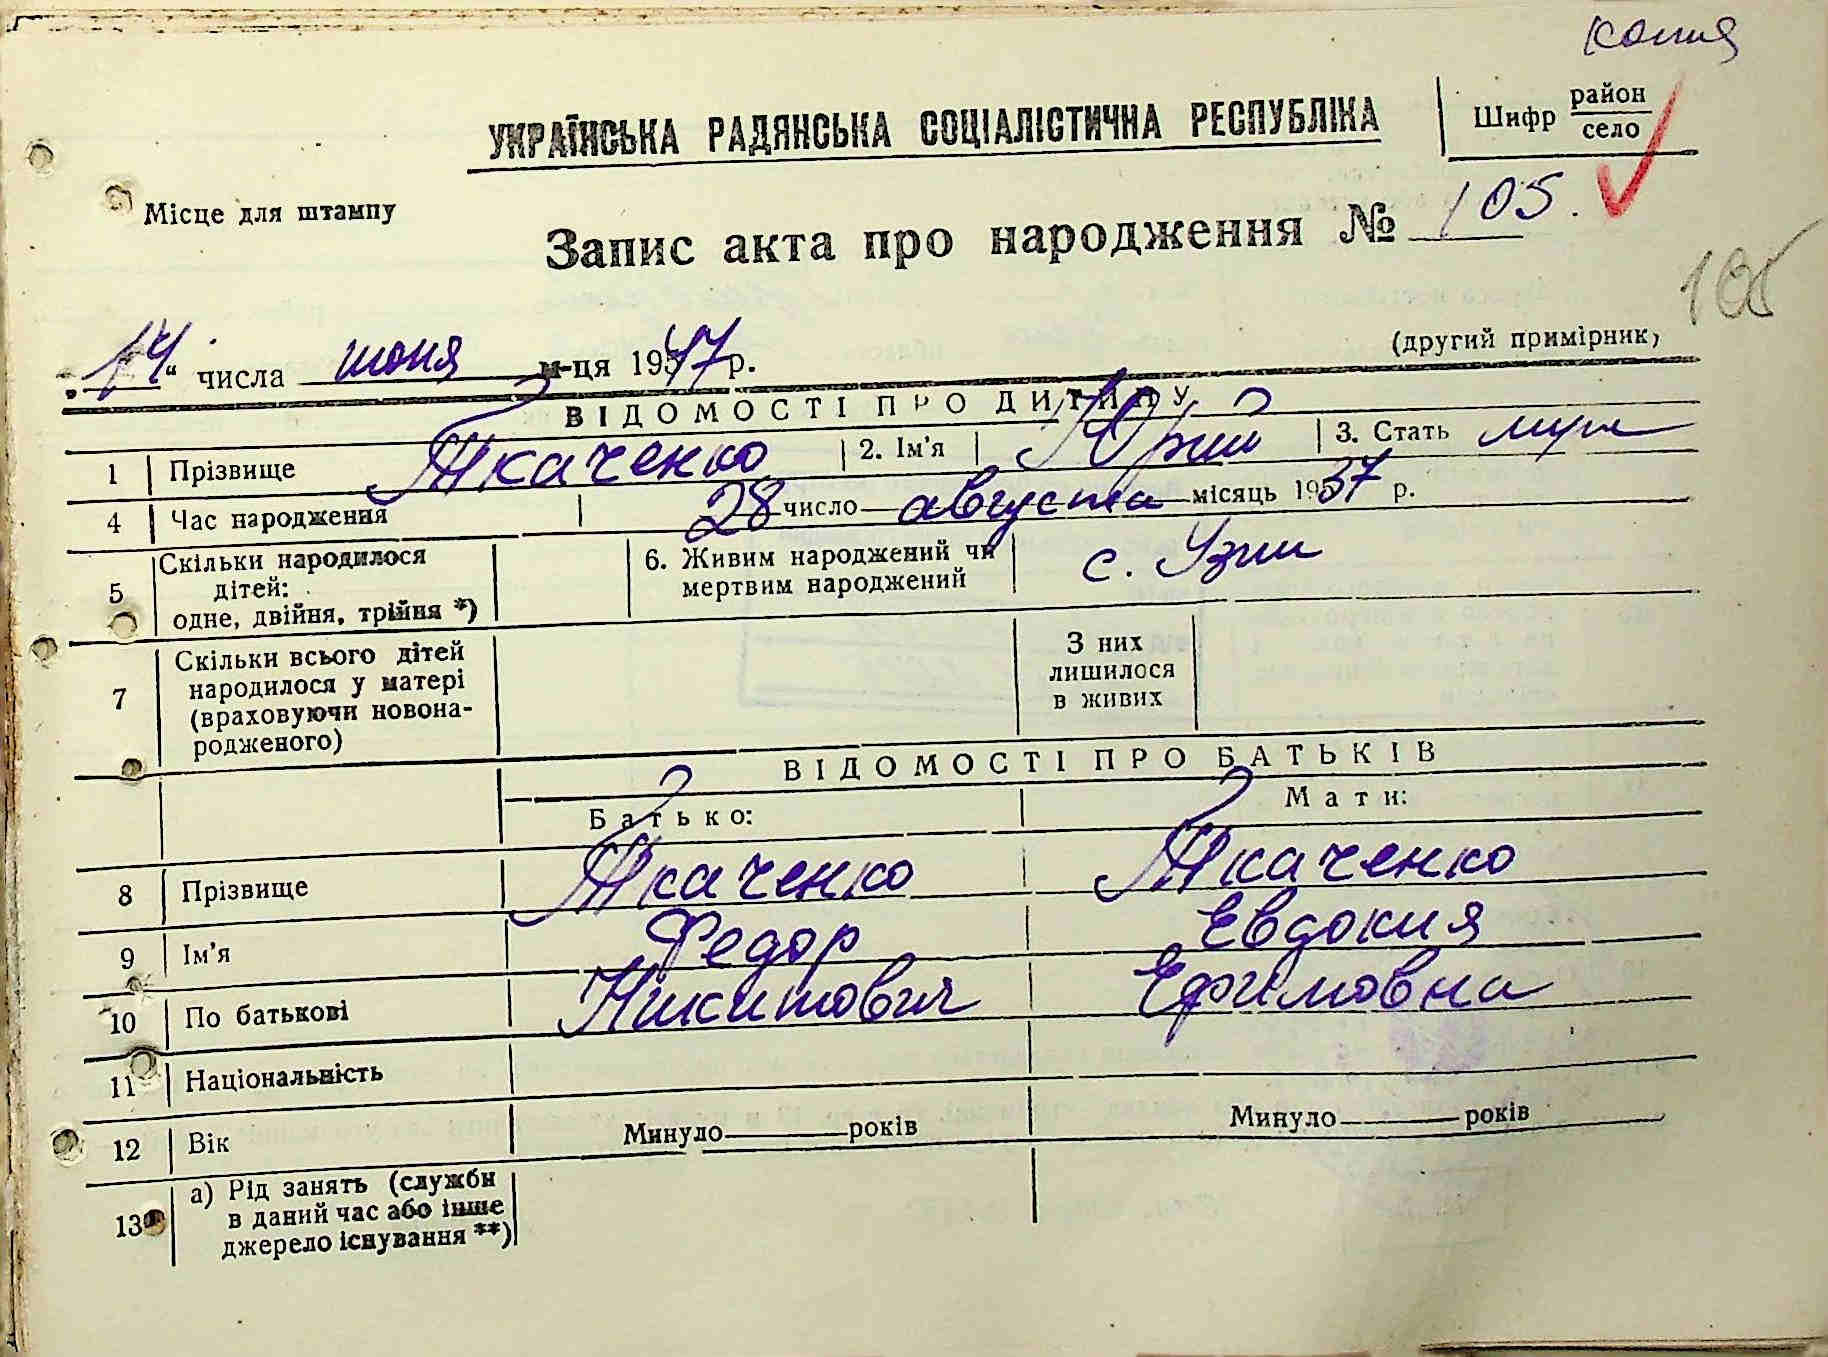 копия
УКРАЇНСЬКА РАДЯНСЬКА СОЦІАЛІСТИЧНА РЕСПУБЛІКА
Шифр район
село
Місце для штампу
Запис акта про народження № 105.
105
„14“ числа июня м-ця 1947 р.
(другий примірник)
ВІДОМОСТІ ПРО ДИТИНУ
1 Прізвище Ткаченко 2. Ім'я Юрий 3. Стать муж
4 Час народження 28 число августа місяць 1937 р.
5 Скільки народилося дітей: одне, двійня, трійня *) 6. Живим народжений чи мертвим народжений с. Узин
7 Скільки всього дітей народилося у матері (враховуючи новонародженого) З них лишилося в живих
ВІДОМОСТІ ПРО БАТЬКІВ
Батько: Мати:
8 Прізвище Ткаченко Ткаченко
9 Ім'я Федор Евдокия
10 По батькові Никитович Ефимовна
11 Національність
12 Вік Минуло років Минуло років
13 а) Рід занять (служби в даний час або інше джерело існування **)